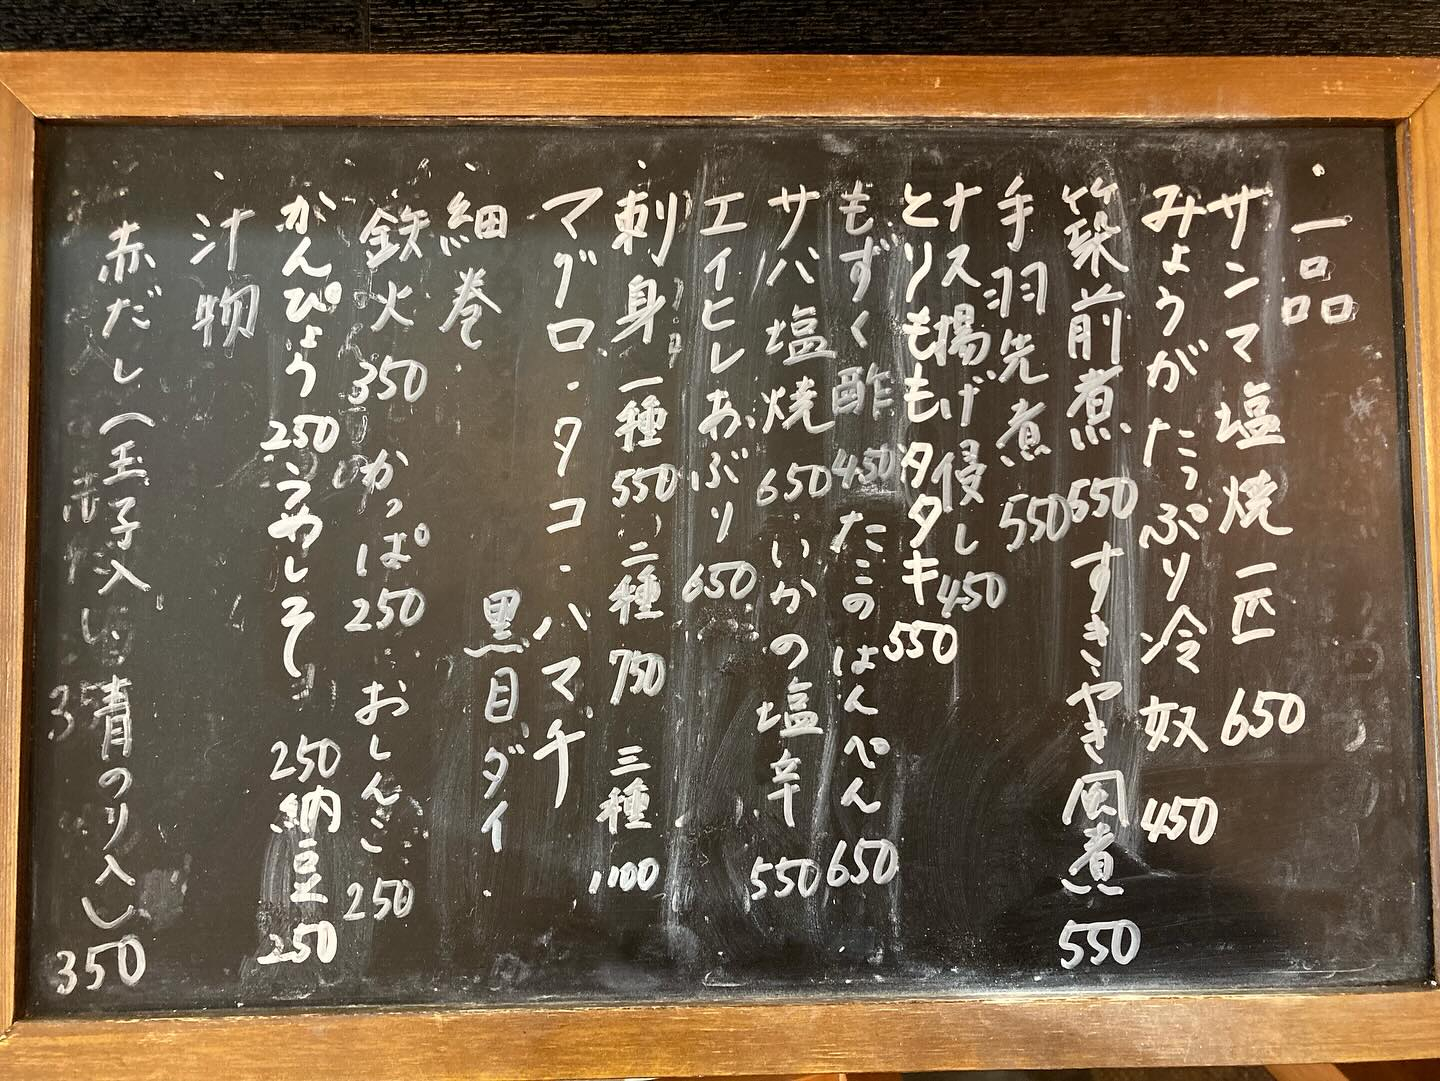 ・一品
サンマ塩焼一匹 650
みょうがたっぷり冷奴 450
築前煮 550 すきやき風煮 550
手羽先煮 550
ナス揚げ侵し 450
とりももタタキ 550
もずく酢 450 たこのはんぺん 650
サバ塩焼 650 いかの塩辛 550
エイヒレあぶり 650
・刺身 一種 550 二種 750 三種 1100
マグロ・タコ・ハマチ
黒目ダイ
・細巻
鉄火 350 かっぱ 250 おしんこ 250
かんぴょう 250 うめしそ 250 納豆 250
・汁物
赤だし(玉子入り、青のり入り) 350